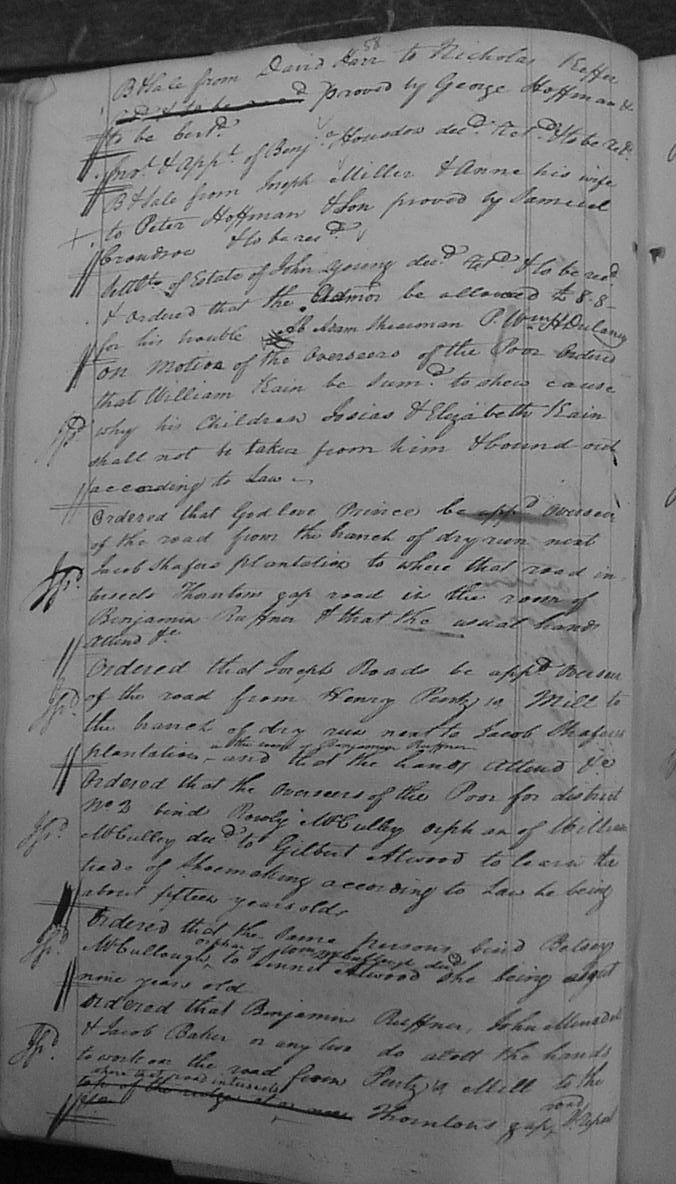 58
B & Sale from David Harr to Nicholas Keffer
proved by George Hoffman &
to be Certd.
Invt. & Appt. of Benj. Housdon decd. Retd. & to be recd.
B & Sale from Joseph Miller & Anne his wife
to Peter Hoffman & Son proved by Samuel
& to be recd.
Settlt. of Estate of John Young decd. Retd. & to be recd
& Ordered that the Admor be allowed £8-8
for his trouble Adam Shearman P. Wm. H Dulaney
On Motion of the Overseers of the Poor Ordered
that William Kain be Sumd. to shew cause
why his Children Josias & Elizabeth Kain
shall not be taken from him & bound out
according to Law
Ordered that Godlove Prince be appd. Overseer
of the road from the branch of dry run next
Jacob Shafers plantation to where that road in
tersects Thorntons gap road in the room of
Benjamin Ruffner & that the usual hands
attend &c
Ordered that Joseph Roads be appd. Overseer
of the road from Henry Pentz's Mill to
the branch of dry run next to Jacob Shafers
in the room of Benjamin Ruffner
plantation and that the hands attend &c
Ordered that the Overseers of the Poor for district
No 2 bind McCulley orphan of William
McCulley decd. to Gilbert Atwood to learn the
trade of Shoemaking according to Law he being
about fifteen years old
Ordered that the Same persons bind Betsey
orphan of decd.
McCullough to Atwood she being about
nine years old
Ordered that Benjamin Ruffner, John
& Jacob Baker or any two do alott the hands
to work on the road from Pentz's Mill to the
where that road intersects
top of the ridge at or near Thorntons gap road